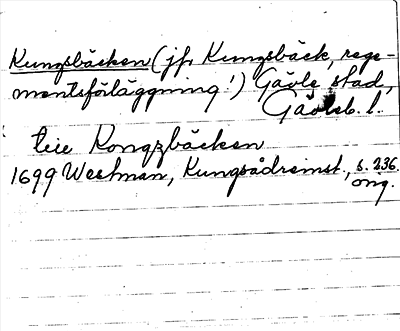 Kungsbäcken (jfr Kungsbäck, rege-
mentsförläggning!) Gävle stad,
Gävleb. l.
teie Kongzbäcken
1699 Westman, Kungsådremst., s. 236.
orig.